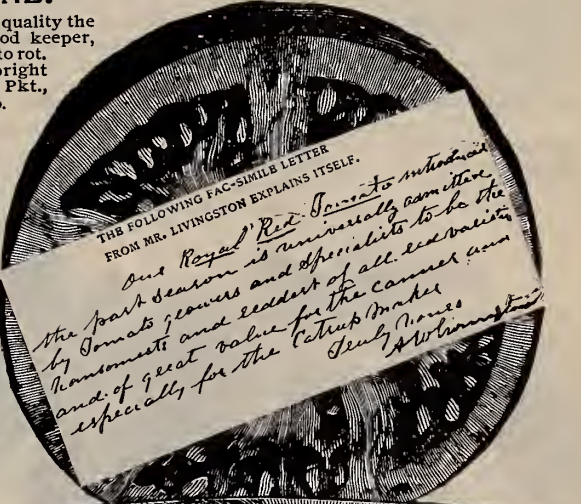 quality the
od keeper,
to rot.
bright
Pkt.,
THE FOLLOWING FAC-SIMILE LETTER
FROM MR. LIVINGSTON EXPLAINS ITSELF.
Our Royal Red Tomato introduced
the past season is universally admitted
by Tomato growers and specialists to be the
hansomests and reddest of all red varieties
and of great value for the canner and
especially for the Catsup Maker
Truly Yours
A W Livingston